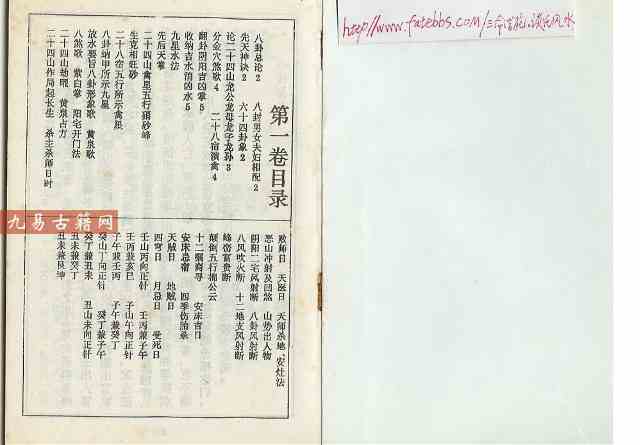 第一卷目录
八卦总论 2 八封男女夫妇相配 2
先天神诀 2 六十四卦象 2
论二十四山龙公龙母龙子龙孙 3
分金穴煞歌 4 二十八宿演禽 4
翻卦阴阳吉凶掌 3
收纳吉水消凶水 5
九星水法
先后天掌
二十四山禽星五行砂峰
生克相旺砂
二十八宿五行所示禽星
八卦纳甲所示九星
放水要旨八卦形象歌 黄泉歌
八煞歌 紫白掌 阳宅开门法
二十四山劫曜 黄泉古方
二十四山作局起长生 杀主杀师日时
败师日 天医日 天师杀地、安灶法
恶山冲射及凹煞 山势出人物
阴阳二宅风射断 八卦风射断
八风吹火断 十二地支风射断
峰峦富贵断
颠倒五行杨公云
十二宫肖寻 安床吉日
安床总宿 四季伤胎杀
天贼日 地贼日
四穷日 月忌日 受死日
壬山丙向正针 壬丙兼子午
壬丙兼亥巳 子山午向正针
子午兼壬丙 子午兼癸丁
癸山丁向正针 癸丁兼子午
癸丁兼丑未 丑山未向正针
丑未兼癸丁
丑未兼艮坤
九易古籍网
http//www.fatebbs.com/三命吉苑.谈氏风水